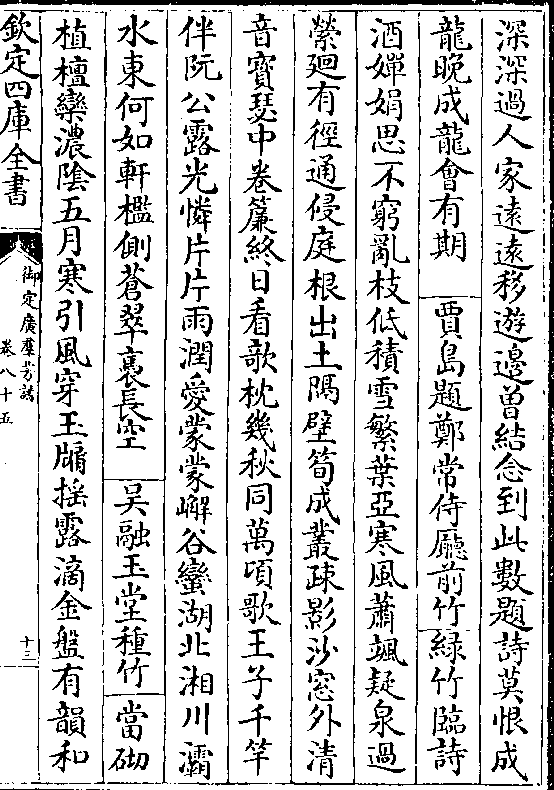 深深過人家遠遠移遊邊曽結念到此數題詩莫恨成
龍晚成龍會有期　賈島題鄭常侍廳前竹緑竹臨詩
酒嬋娟思不窮亂枝低積雪繁葉亞寒風蕭颯疑泉過
縈廻有徑通侵庭根出土隅壁筍成叢疎影沙窓外清
音寳瑟中卷簾終日看欹枕幾秋同萬頃歌王子千竿
伴阮公露光憐片片雨潤愛蒙蒙嶰谷蠻湖北湘川灞
水東何如軒檻側蒼翠裛長空　吴融玉堂種竹當砌
植檀欒濃陰五月寒引風穿玉牖揺露滴金盤有韻和
欽定四庫全書
御定廣羣芳譜
卷八十五
十三